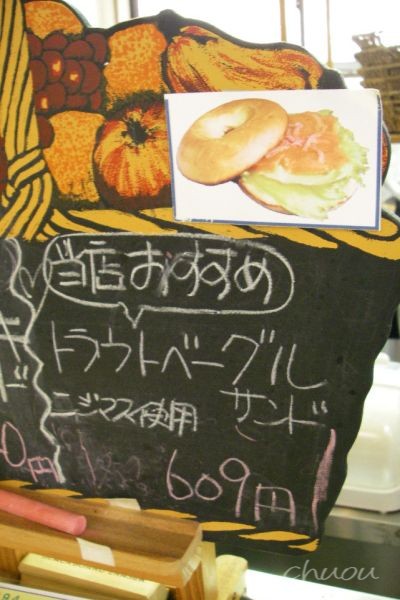 当店おすすめ
トラウトベーグル
サンド
ニジマス使用
609円
0円
chuou